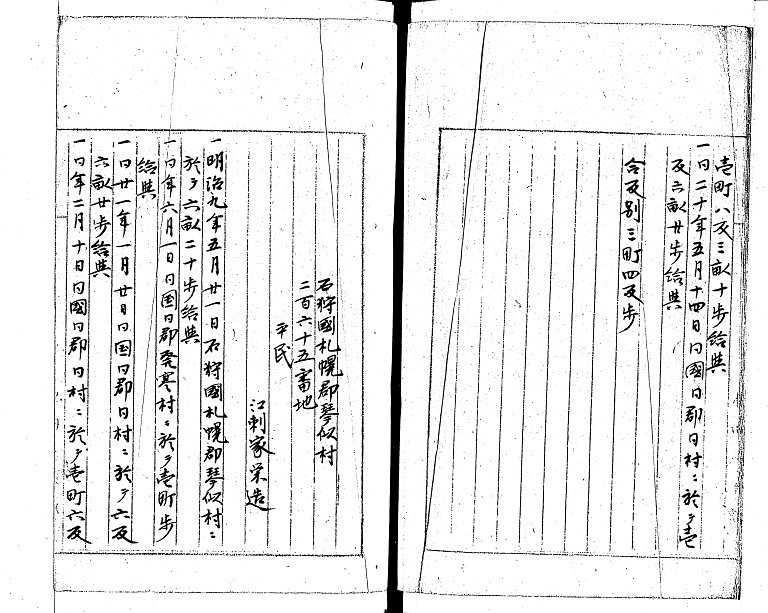 壱町八反三畝十歩給与
一同二十年五月十四日同國同郡同村ニ於テ壱
反六畝廿歩給与
合反別三町四反歩
石狩國札幌郡琴似村
二百六十五番地
平民
江刺家栄造
一明治九年五月廿一日石狩國札幌郡琴似村ニ
於テ六畝二十歩給与
一同年六月一日同国同郡発寒村ニ於テ壱町歩
給与
一同廿一年一月廿日同国同郡同村ニ於テ六反
六畝廿歩給与
一同年二月十日同國同郡同村ニ於テ壱町六反